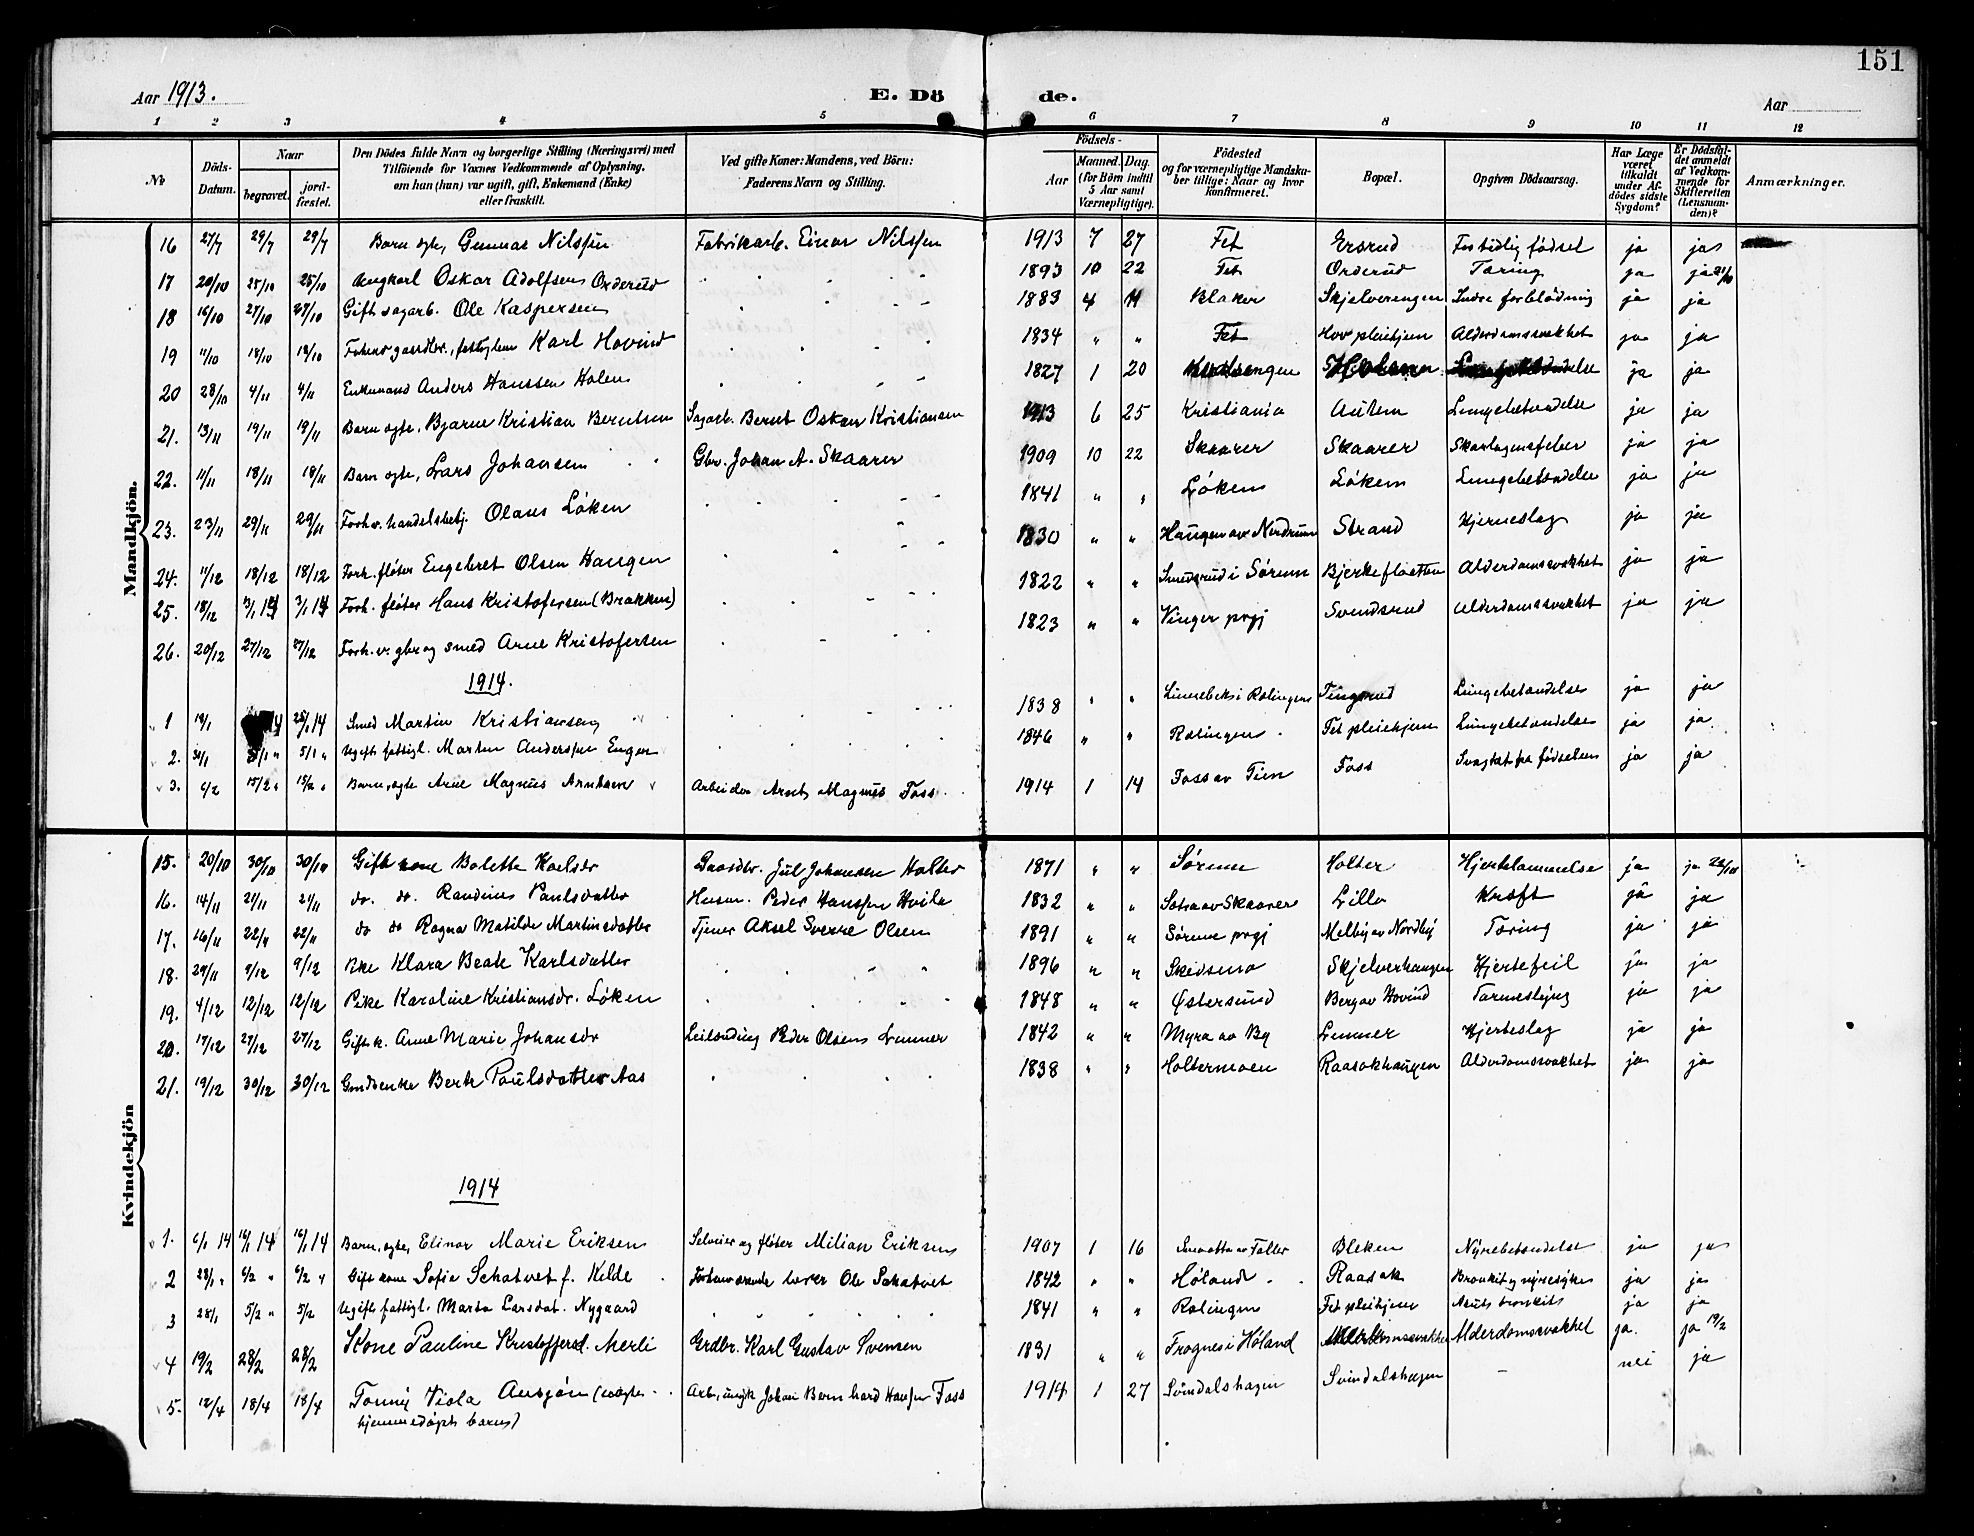 151
Aar 1913. E. Dö de. Aar
1 2 3 4 5 6 7 8 9 10 11 12
Nr. Döds-Datum. Naar begravet. jord-fæstet. Den Dödes fulde Navn og borgerlige Stilling (Næringsvei) med Tilföiende for Voxnes Vedkommende af Oplysning, om han (hun) var ugift, gift, Enkemand (Enke) eller fraskilt. Ved gifte Koner: Mandens, ved Börn: Faderens Navn og Stilling. Födsels- Aar Maaned. Dag. (for Börn indtil 5 Aar samt Værnepligtige). Födested og for værnepligtige Mandska-ber tillige: Naar og hvor konfirmeret. Bopæl. Opgiven Dödsaarsag. Har Læge været tilkaldt under Af-dödes sidste Sygdom? Er Dödsfal-det anmeldt af Vedkom-mende for Skifteretten (Lensman-den)? Anmærkninger.
Mandkjön.
16 27/7 29/7 29/7 Barn ægte, Gunnar Nilssen Fabrikarb. Einar Nilssen 1913 7 27 Fet Ersrud For tidlig fødsel ja ja
17 20/10 25/10 25/10 Ungkarl Oskar Adolfsen Orderud 1893 10 22 Fet Orderud Tæring ja ja 21/10
18 16/10 27/10 27/10 Gift sagarb. Ole Kaspersen 1883 4 11 Blaker Skjelverengen Indre forblødning ja ja
19 11/10 18/10 18/10 Karl Hovind 1834 " " Fet Hov pleiehjem Alderdomssvakhet ja ja
20 28/10 4/11 4/11 Enkemand Anders Hanssen Holen 1827 1 20 ja ja
21. 13/11 19/11 19/11 Barn ægte, Bjarne Kristian Berntsen Sagarb. Bernt Oskar Kristiansen 1913 6 25 Kristiania Autern Lungebetændelse ja ja
22. 11/11 18/11 18/11 Barn ægte, Lars Johansen Gbr. Johan A. Skaarer 1909 10 22 Skaarer Skaarer Skarlagensfeber ja ja
23. 23/11 29/11 29/11 Forhv. handelsbetj. Olaus Løken 1841 " " Løken Løken Lungebetændelse ja ja
24. 11/12 18/12 18/12 Forh. fløter Engebret Olsen Haugen 1830 " " Haugen av Nerdrum Strand Hjerneslag ja ja
25. 18/12 3/1 14 3/1 14 Forh. fløter Hans Kristofersen (Brakken) 1822 " " Smedsrud i Sørum Bjerkefloetten Alderdomssvakhet ja ja
26. 20/12 27/12 27/12 Forh.v. gbr og smed Arne Kristofersen 1823 " " Vinger prgj Svendsrud Alderdomssvakhet ja ja
1914.
1 19/1 14 25/1 14 Smed Martin Kristiansen 1838 " " i Rælingen Tingsrud Lungebetændelse ja ja
2. 5/1 " 5/1 " Ugift fattigl. Marten Anderssen Engen 1846 " " Rælingen Fet pleiehjem Lungebetændelse ja ja
3. 6/2 15/2 " 15/2 " Barn, ægte Arne Magnus Arntsen Arbeider Arnt Magnus Foss 1914 1 14 Foss av Tien Foss Svaghet fra fødselen ja ja
Kvindekjön
15. 20/10 30/10 30/10 Gift kone Bolette Karlsdr Gaardbr. Jul Johansen Holter 1871 " " Sørum Holter Hjertelammelse ja ja 22/10
16. 14/11 21/11 21/11 do. do. Randine Paulsdatter Husm. Peder Hanssen Hvila 1832 " " Sætra av Skaarer Lillo Kræft ja ja
17. 16/11 22/11 22/11 do do Ragna Matilde Martinsdatter Tjener Aksel Sverre Olsen 1891 " " Sørum prgj Melby av Nordby Tæring ja ja
18. 29/11 9/12 9/12 Pike Klara Beate Karlsdatter 1896 " " Skedsmo Skjelverhaugen Hjertefeil ja ja
19. 4/12 12/12 12/12 Pike Karoline Kristiansdr. Løken 1848 " " Østersund Berg av Hovind Tarmeslyng ja ja
20. 17/12 27/12 27/12 Gift k. Anne Marie Johansdr Leilending Peder Olsens Lunner 1842 " " Myra av By Lunner Hjerteslag ja ja
21. 19/12 30/12 30/12 Gaardsenke Berte Poulsdatter Aas 1838 " " Holtermoen Raasokhaugen Alderdomssvakhet ja ja
1914
1. 6/1 14 16/1 14 16/1 14 Barn, ægte, Elinor Marie Eriksen Selveier og fløter Milian Eriksen 1907 1 16 av Faller Bleken Nyrebetændelse ja ja
2 28/1 " 6/2 " 6/2 " Gift kone Sofie Schatvet f. Kilde Forhenværende lærer Ole Schatvet 1842 " " Høland Raasok Bronkit og nyresyke ja ja
3 28/1 5/2 " 5/2 Ugift fattigl. Marta Larsdat. Nygaard 1841 " " Rælingen Fet pleiehjem Akut bronkit ja ja
4 19/2 28/2 28/2 Kone Pauline Kristoffersd. Merli Grdbr. Karl Gustav Svensen 1831 " " Frognes i Høland Alderdomssvakhet ja. ja 19/2
5. 12/4 18/4 18/4 Tonny Viola Ansjøn (uægte hjemmedøpt barn) Arb., ungk Johan Bernhard Hansen Foss 1914 1 27 Svindalshagen Svindalshagen – nei ja